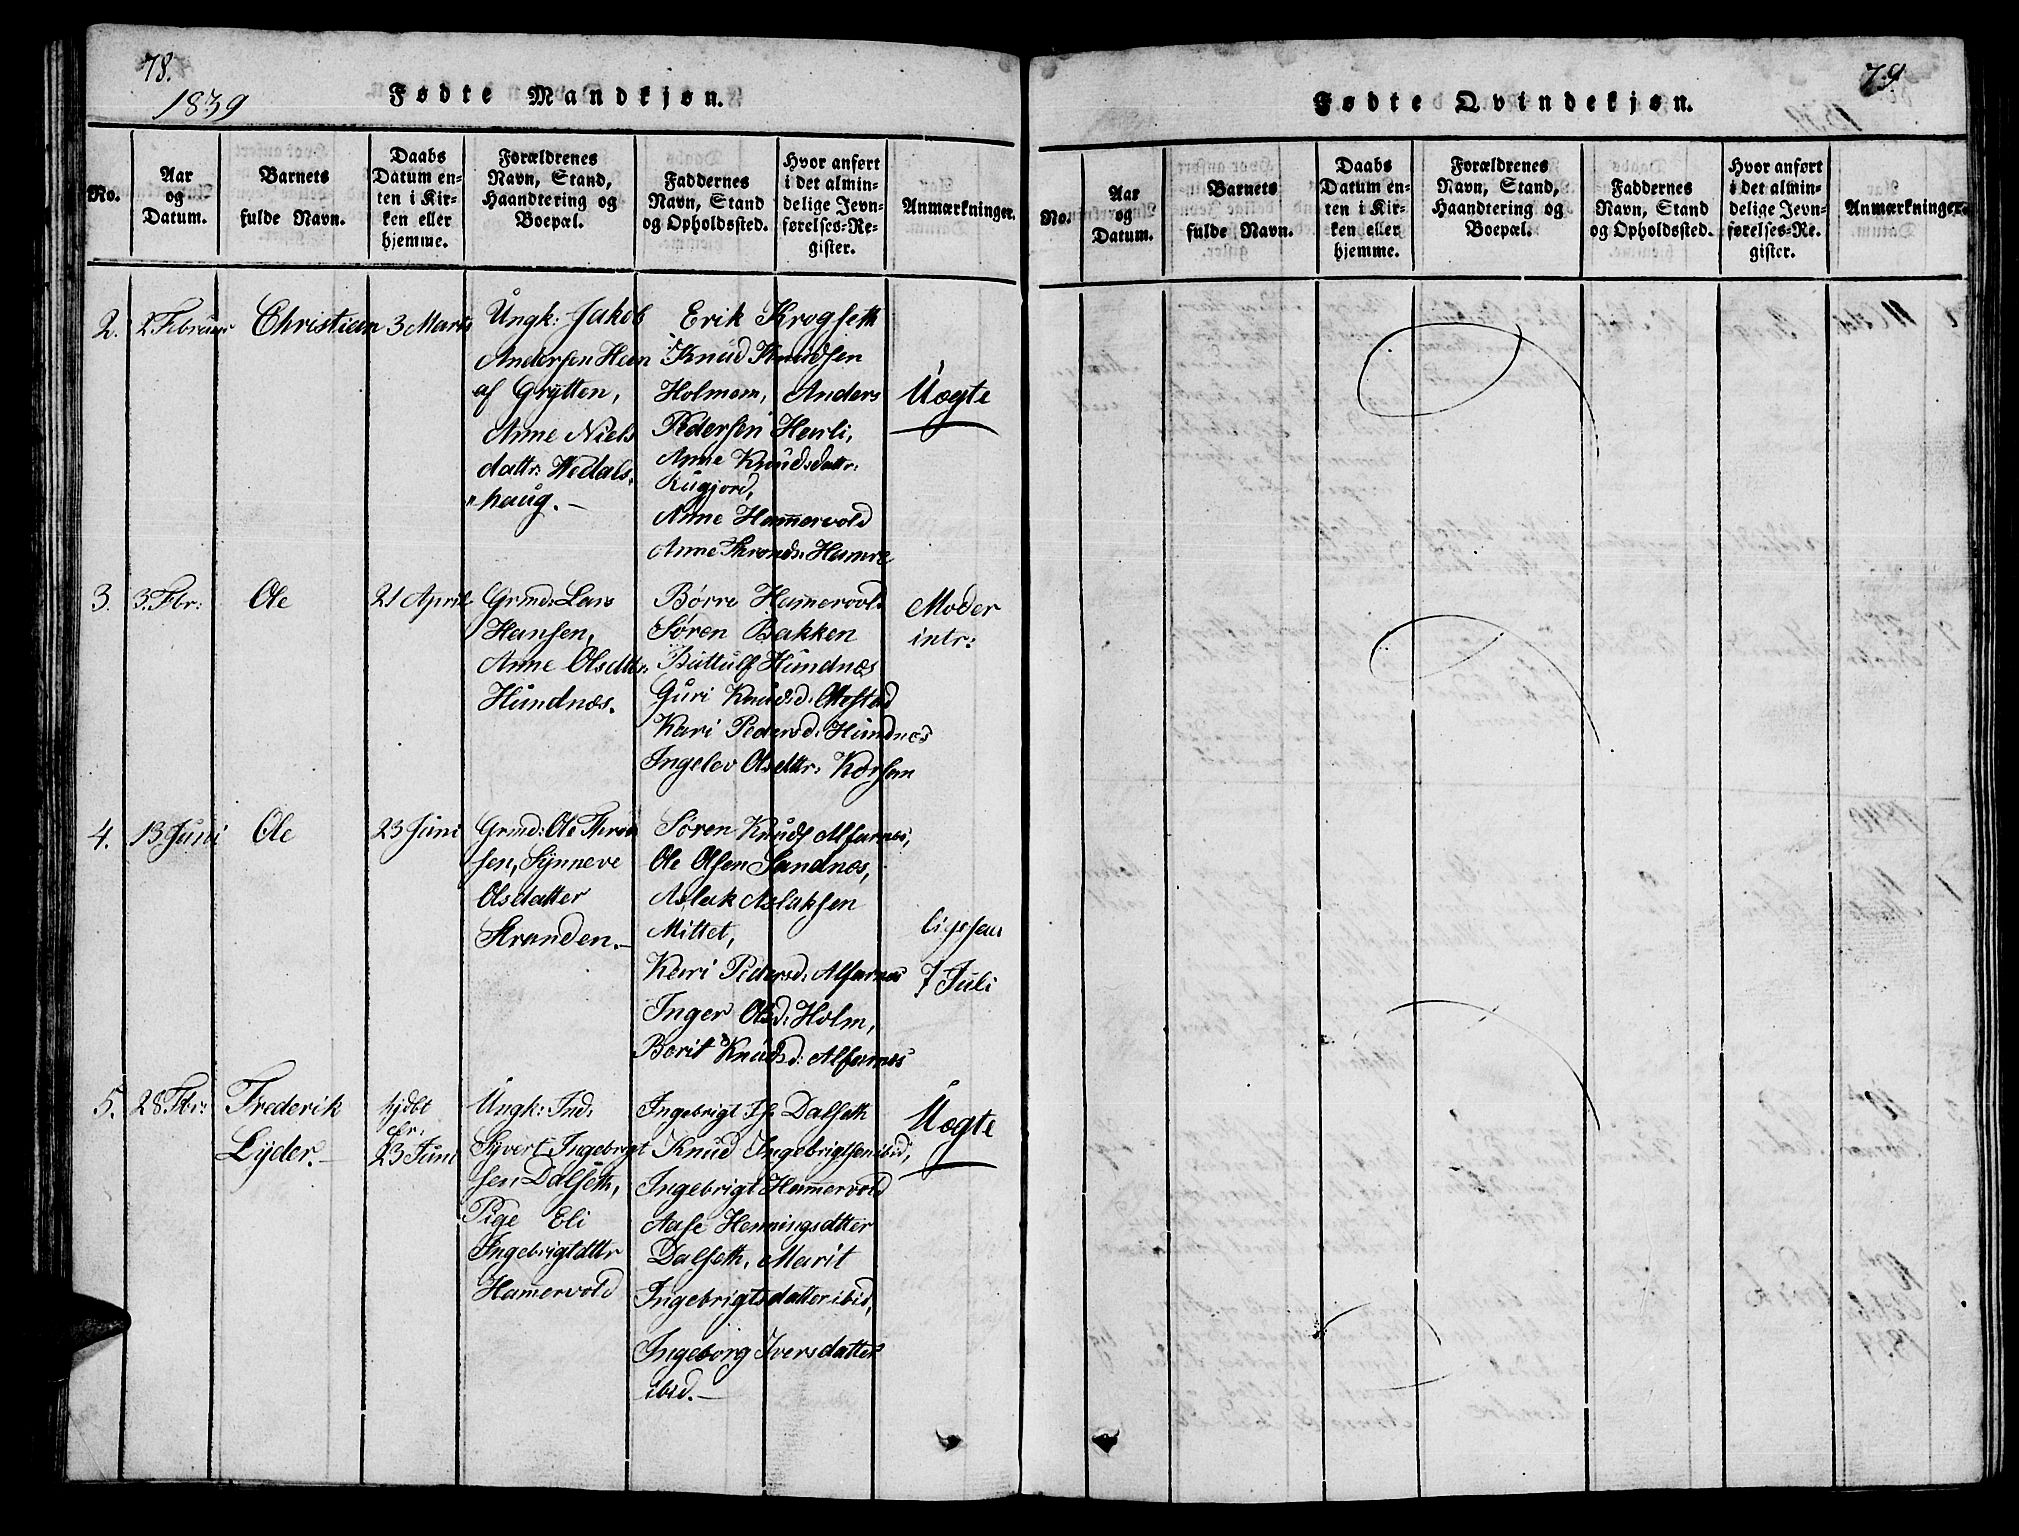 78.
1839
Fødte Mandkjøn.
No.
Aar
og
Datum.
Barnets
fulde Navn.
Daabs
Datum en-
ten i Kir-
ken eller
hjemme.
Forældrenes
Navn, Stand,
Haandtering og
Boepæl.
Faddernes
Navn, Stand
og Opholdssted.
Hvor anført
i det almin-
delige Jevn-
førelses-Re-
gister.
Anmærkninger.
2.
2 Februar
Christian
3 Marts
Ungk: Jakob
Andersen Heen
af Grytten,
Anne Niels
dattr: Hedals-
"haug. -
Erik Krogseth
Knud Knudsen
Holmem, Anders
Pedersen Herli,
Anne Knudsdattr:
Kugjord,
Anne Hammervold
Anne Thronds: Hamre
Uægte
3.
3. Fbr:
Ole
21 April
Grmd: Lars
Hansen,
Anne Olsdttr.
Hundnæs.
Børre Hamervold
Søren Bakken
Buttulf Hundnæs
Guri Knudsd:
Kari Pedersd: Hundnæs
Ingelev Olsdttr: Korsan
Moder
intr:
4.
13 Juni
Ole
23 Juni
Grmd: Ole
sen, Synneve
Olsdatter
Stranden. -
Søren Knuds Alfarnes,
Ole Olsen Sandnes,
Aslak Aslaksen
Mittet,
Kari Pedersd: Alfarnes
Inger Olsd: Holm,
Borit Knudsd: Alfarnes
7 Juli
5.
28. Fbr:
Frederik
Lyder. -
hjdbt
fr.
23 Juni
Ungk: Ind:
Syvert Ingebrigt
sen Dalseth,
Pige Eli
Ingebrigtdttr
Hamervold
Ingebrigt Is: Dalseth
Knud Ingebrigtsen ibid,
Ingebrigt Hamervold
Aase Henningsdtter
Dalseth, Marit
Ingebrigtsdatter ibid,
Ingeborg Iversdatter
ibid. -
Uægte
79
Fødte Qvindekjøn.
No.
Aar
og
Datum.
Barnets
fulde Navn.
Daabs
Datum en-
ten i Kir-
ken eller
hjemme.
Forældrenes
Navn, Stand,
Haandtering og
Boepæl.
Faddernes
Navn, Stand
og Opholdssted.
Hvor anført
i det almin-
delige Jevn-
førelses-Re-
gister.
Anmærkninger.